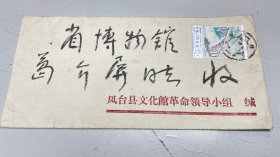 省博物館
葛介屏同志 收
凤台县文化館革命领导小组 缄